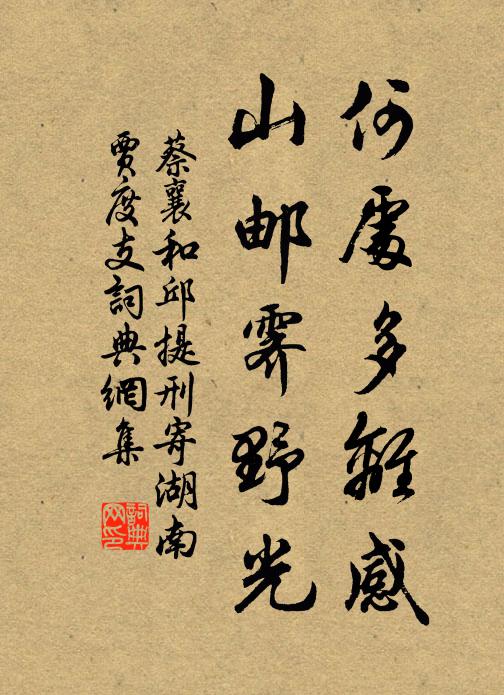 何處多離感
山邮霁野光
蔡襄和邱提刑寄湖南
賈度支詞典網集
詞典网印